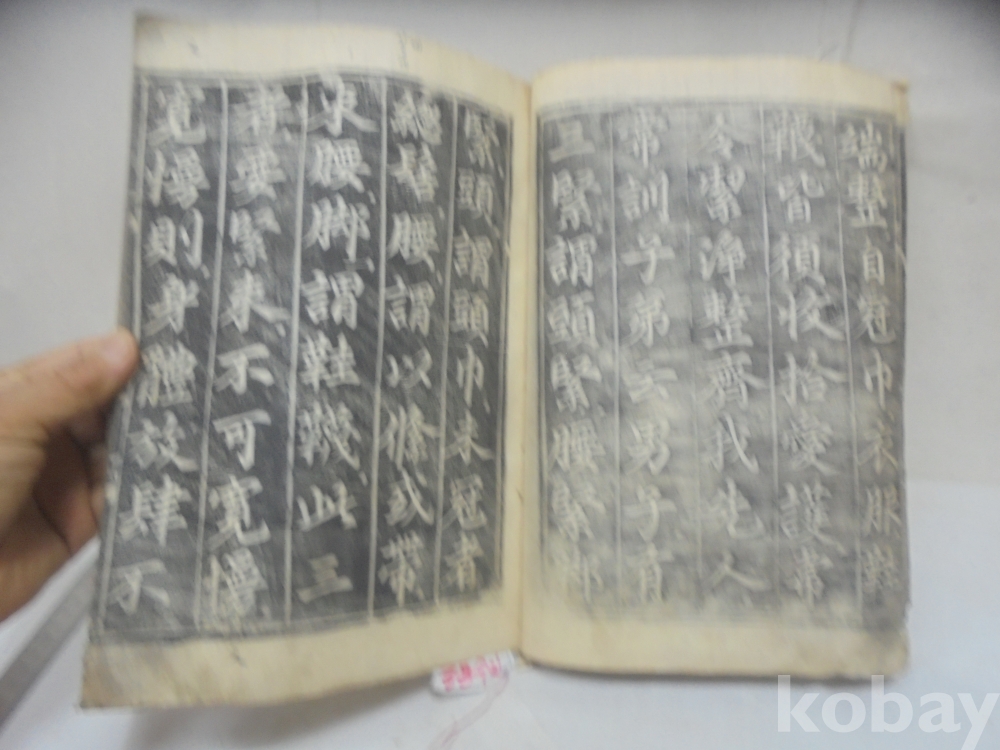 端整自冠巾衣服鞋
韈皆須收拾愛護常
令潔淨整齊我先人
常訓子弟云男子有
三緊謂頭緊腰緊脚
緊頭謂頭巾未冠者
總髻腰謂以絛或帶
束腰脚謂鞋韈此三
者要緊束不可寬慢
寬慢則身體放肆不
kobay